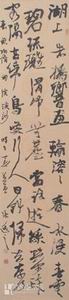 湖上朱橋響畫輪溶溶春水浸春雲
碧琉璃滑淨無塵當路游絲縈醉
客隔花啼鳥喚行人日斜歸去奈
何春